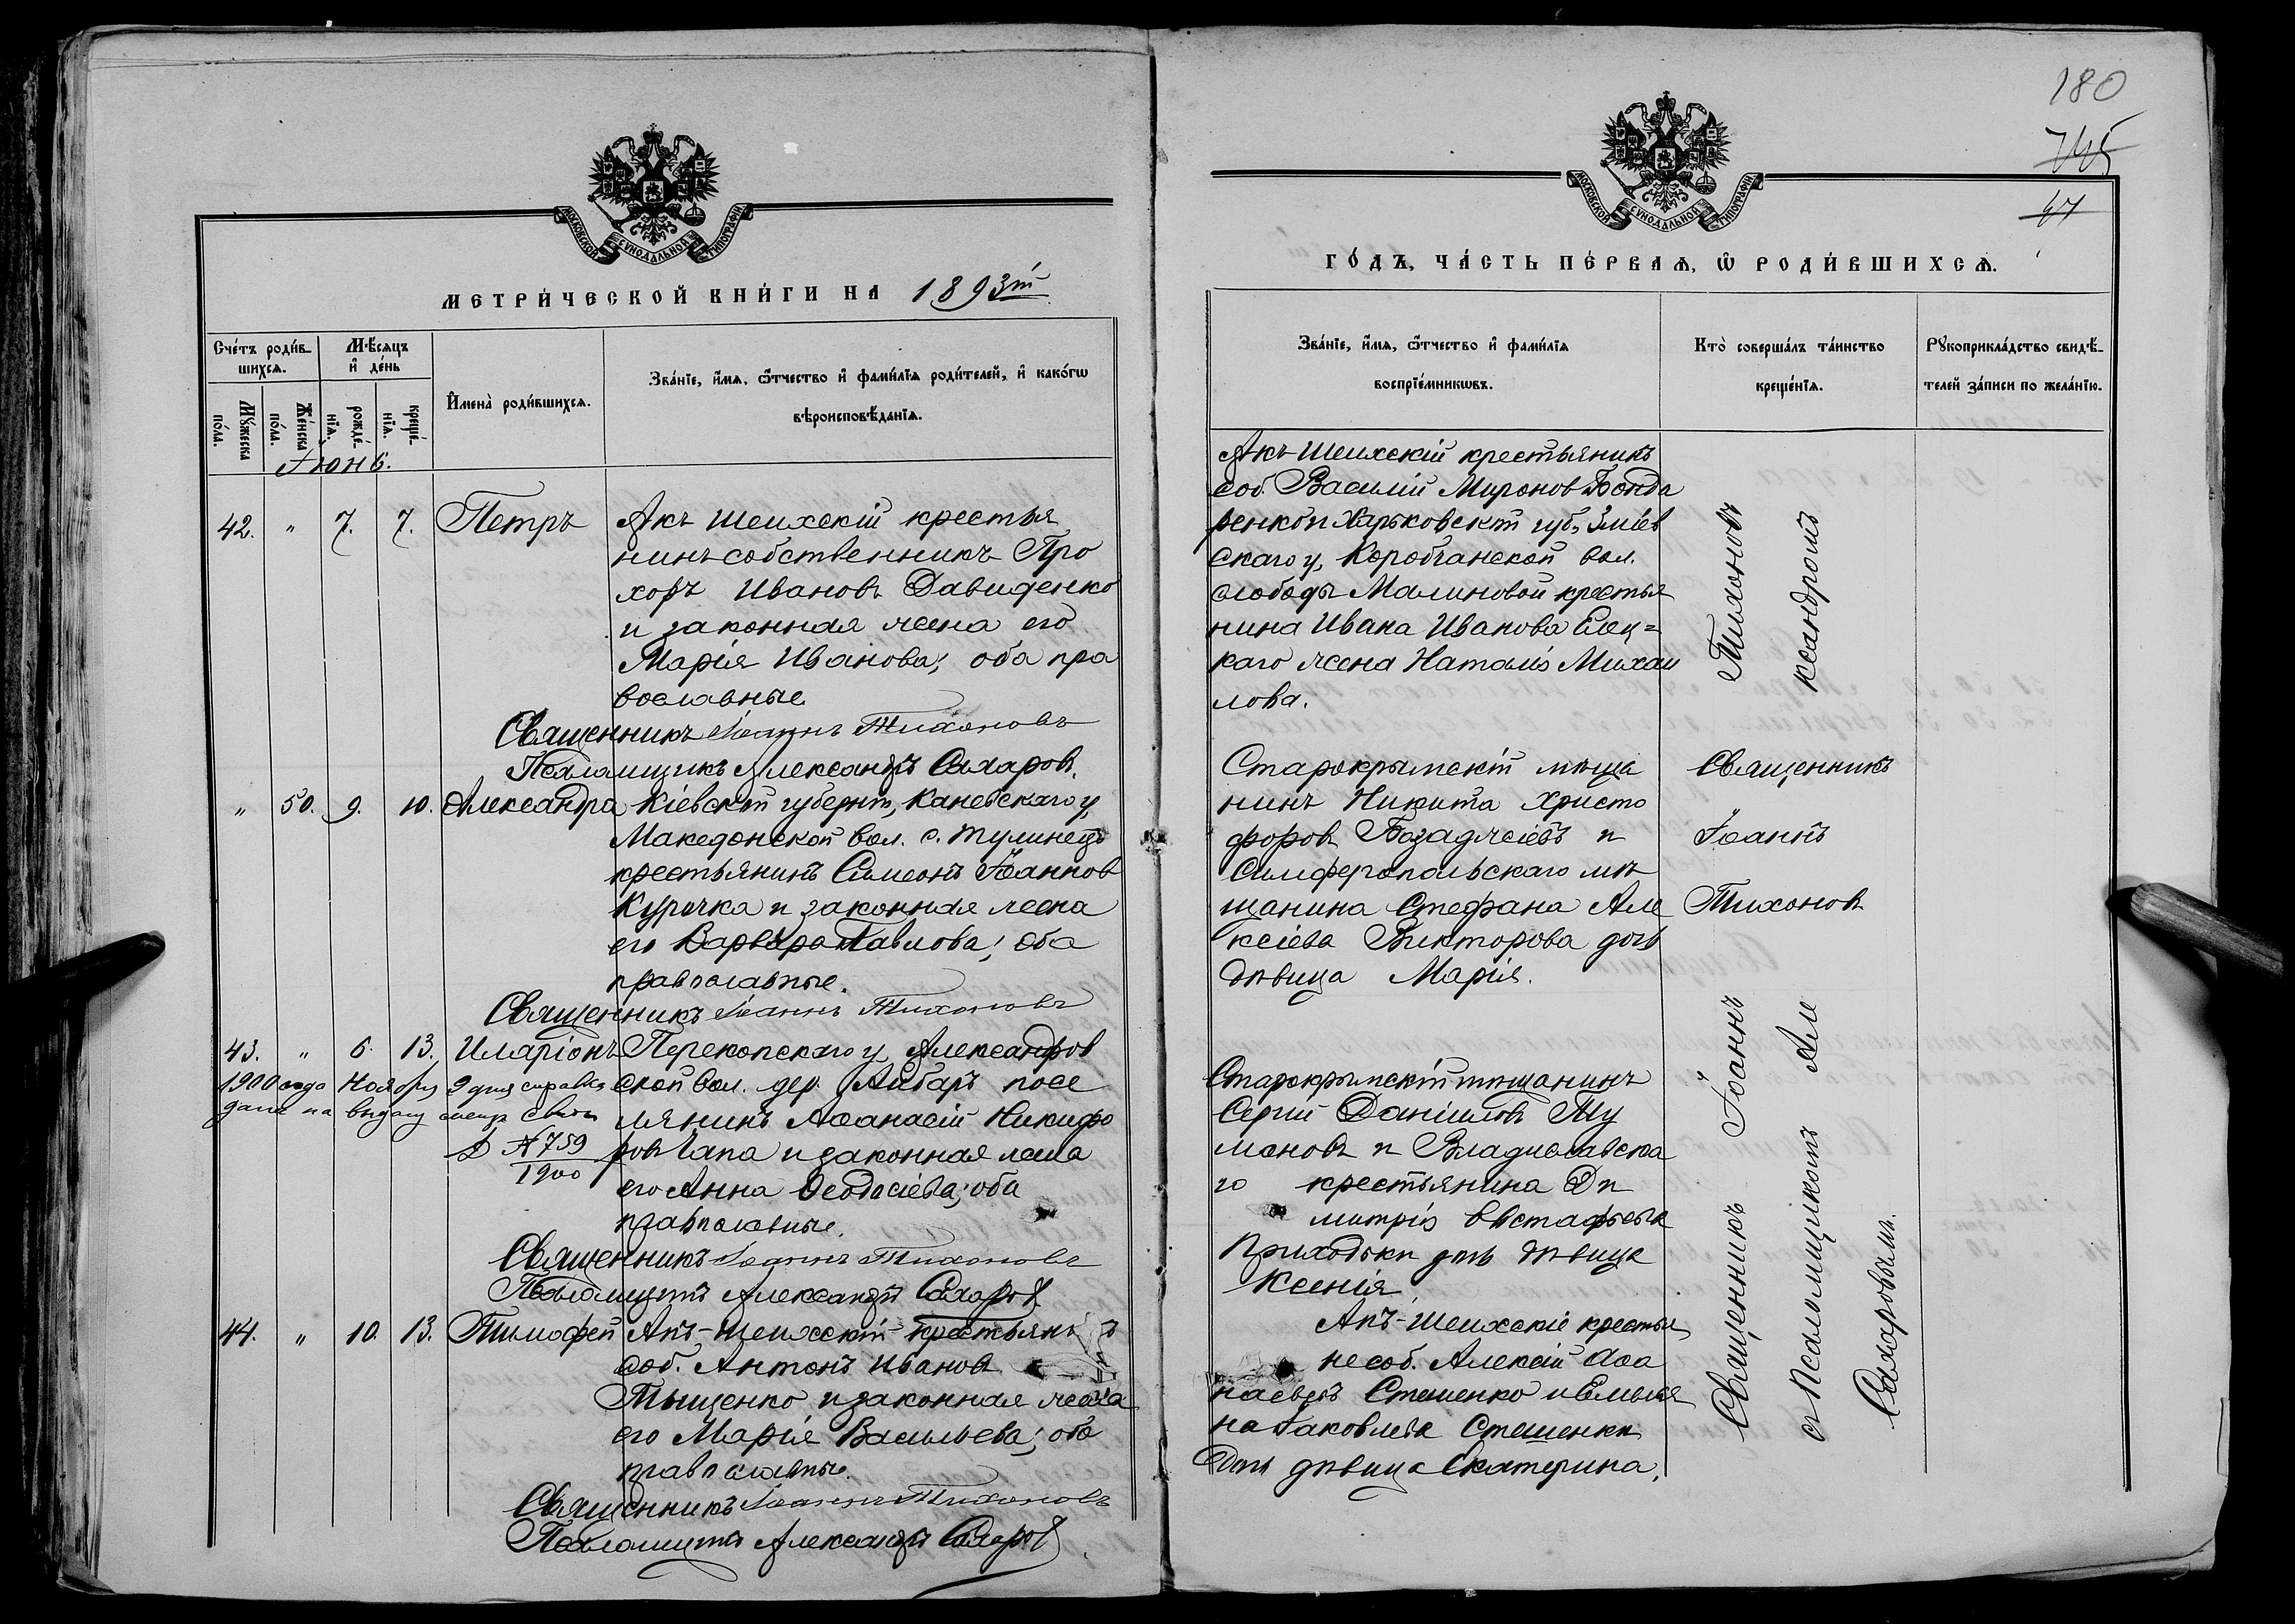 180
745
47
МОСКОВСКОЙ СѴНОДАЛЬНОЙ ТИПОГРАФІИ
МЕТРИ́ЧЕСКОЙ КНИ́ГИ НА 1893й
Сче́тъ роди́в-
шихся.
Мѣ́сяцъ
и҆ де́нь
Мꙋ́жеска
по́ла.
Же́нска
по́ла.
рожде́-
нїѧ.
креще́-
нїѧ.
И҆мена̀ роди́вшихсѧ.
Зва́нїе, и҆́мѧ, ѻ҆́тчество и҆ фами́лїѧ роди́телей, и҆ како́гѡ
вѣроисповѣ́данїѧ.
Іюнь.
42. " 7. 7. Петръ
Акъ Шеихскій крестья
нинъ собственникъ Про
хоръ Ивановъ Давиденко
и законная жена его
Марія Иванова; оба пра
вославные.
Священникъ Іоаннъ Тихоновъ
Псаломщикъ Александръ Сахаровъ.
" 50. 9. 10. Александра
Кіевской губерніи, Каневскаго у,
Македонской вол. с. Тулинецъ
крестьянинъ Симеонъ Іоаннов
Курочка и законная жена
его Варвара Павлова; оба
православные.
Священникъ Іоаннъ Тихоновъ
43. " 6. 13. Иларіонъ
1900 года Ноября 9 дня справка
дана на выдачу
№ 759
1900
Перекопскаго у, Александров
ской вол. дер. Айбаръ посе
лянинъ Аѳанасій Никифо
ровъ Чапа и законная жена
его Анна Ѳеодосіева; оба
православные.
Священникъ Іоаннъ Тихоновъ
Псаломщикъ Александръ Сахаровъ
44. " 10. 13. Тимофей
Акъ-Шеихскій крестьянинъ
соб. Антонъ Иванов
Тыщенко и законная жена
его Марія Васильева; оба
православные.
Священникъ Іоаннъ Тихоновъ
Псаломщикъ Александръ Сахаровъ
МОСКОВСКОЙ СѴНОДАЛЬНОЙ ТИПОГРАФІИ
ГО́ДЪ, ЧА́СТЬ ПЕ́РВАѦ, Ѡ҆ РОДИ́ВШИХСѦ.
Зва́нїе, и҆́мѧ, ѻ҆́тчество и҆ фами́лїѧ
воспрїе́мникѡвъ.
Кто̀ соверша́лъ та́инство
креще́нїѧ.
Рꙋкоприкла́дство свидѣ́-
телей за́писи по жела́нїю.
Акъ Шеихскій крестьянинъ
соб. Василій Миронов Бонда
ренко и Харьковской губ, Зміев
скаго у, Коробчанской вол.
слободы Малиновой крестья
нина Ивана Иванова Елец=
каго жена Наталія Михаи
лова.
Старокрымскій мѣща
нинъ Никита Христо
форовъ Бозаджіевъ и
Симферопольскаго мѣ
щанина Стефана Але
ксіева Викторова дочь
дѣвица Марія.
Священникъ
Іоаннъ
Тихоновъ
Старокрымскій мѣщанинъ
Сергій Даніиловъ Ту
мановъ и Владиславска
го крестьянина Ди
митрія Евстафьева
Приходьки дочь дѣвица
Ксенія.
Акъ-Шеихскіе крестья
не соб. Алексій Аѳа
насьевъ Стешенко и Емелья
на Іаковлева Стешенки
дочь дѣвица Екатерина.
Священникъ Іоаннъ Тихоновъ
съ Псаломщикомъ Але
ксандромъ
Сахаровымъ.